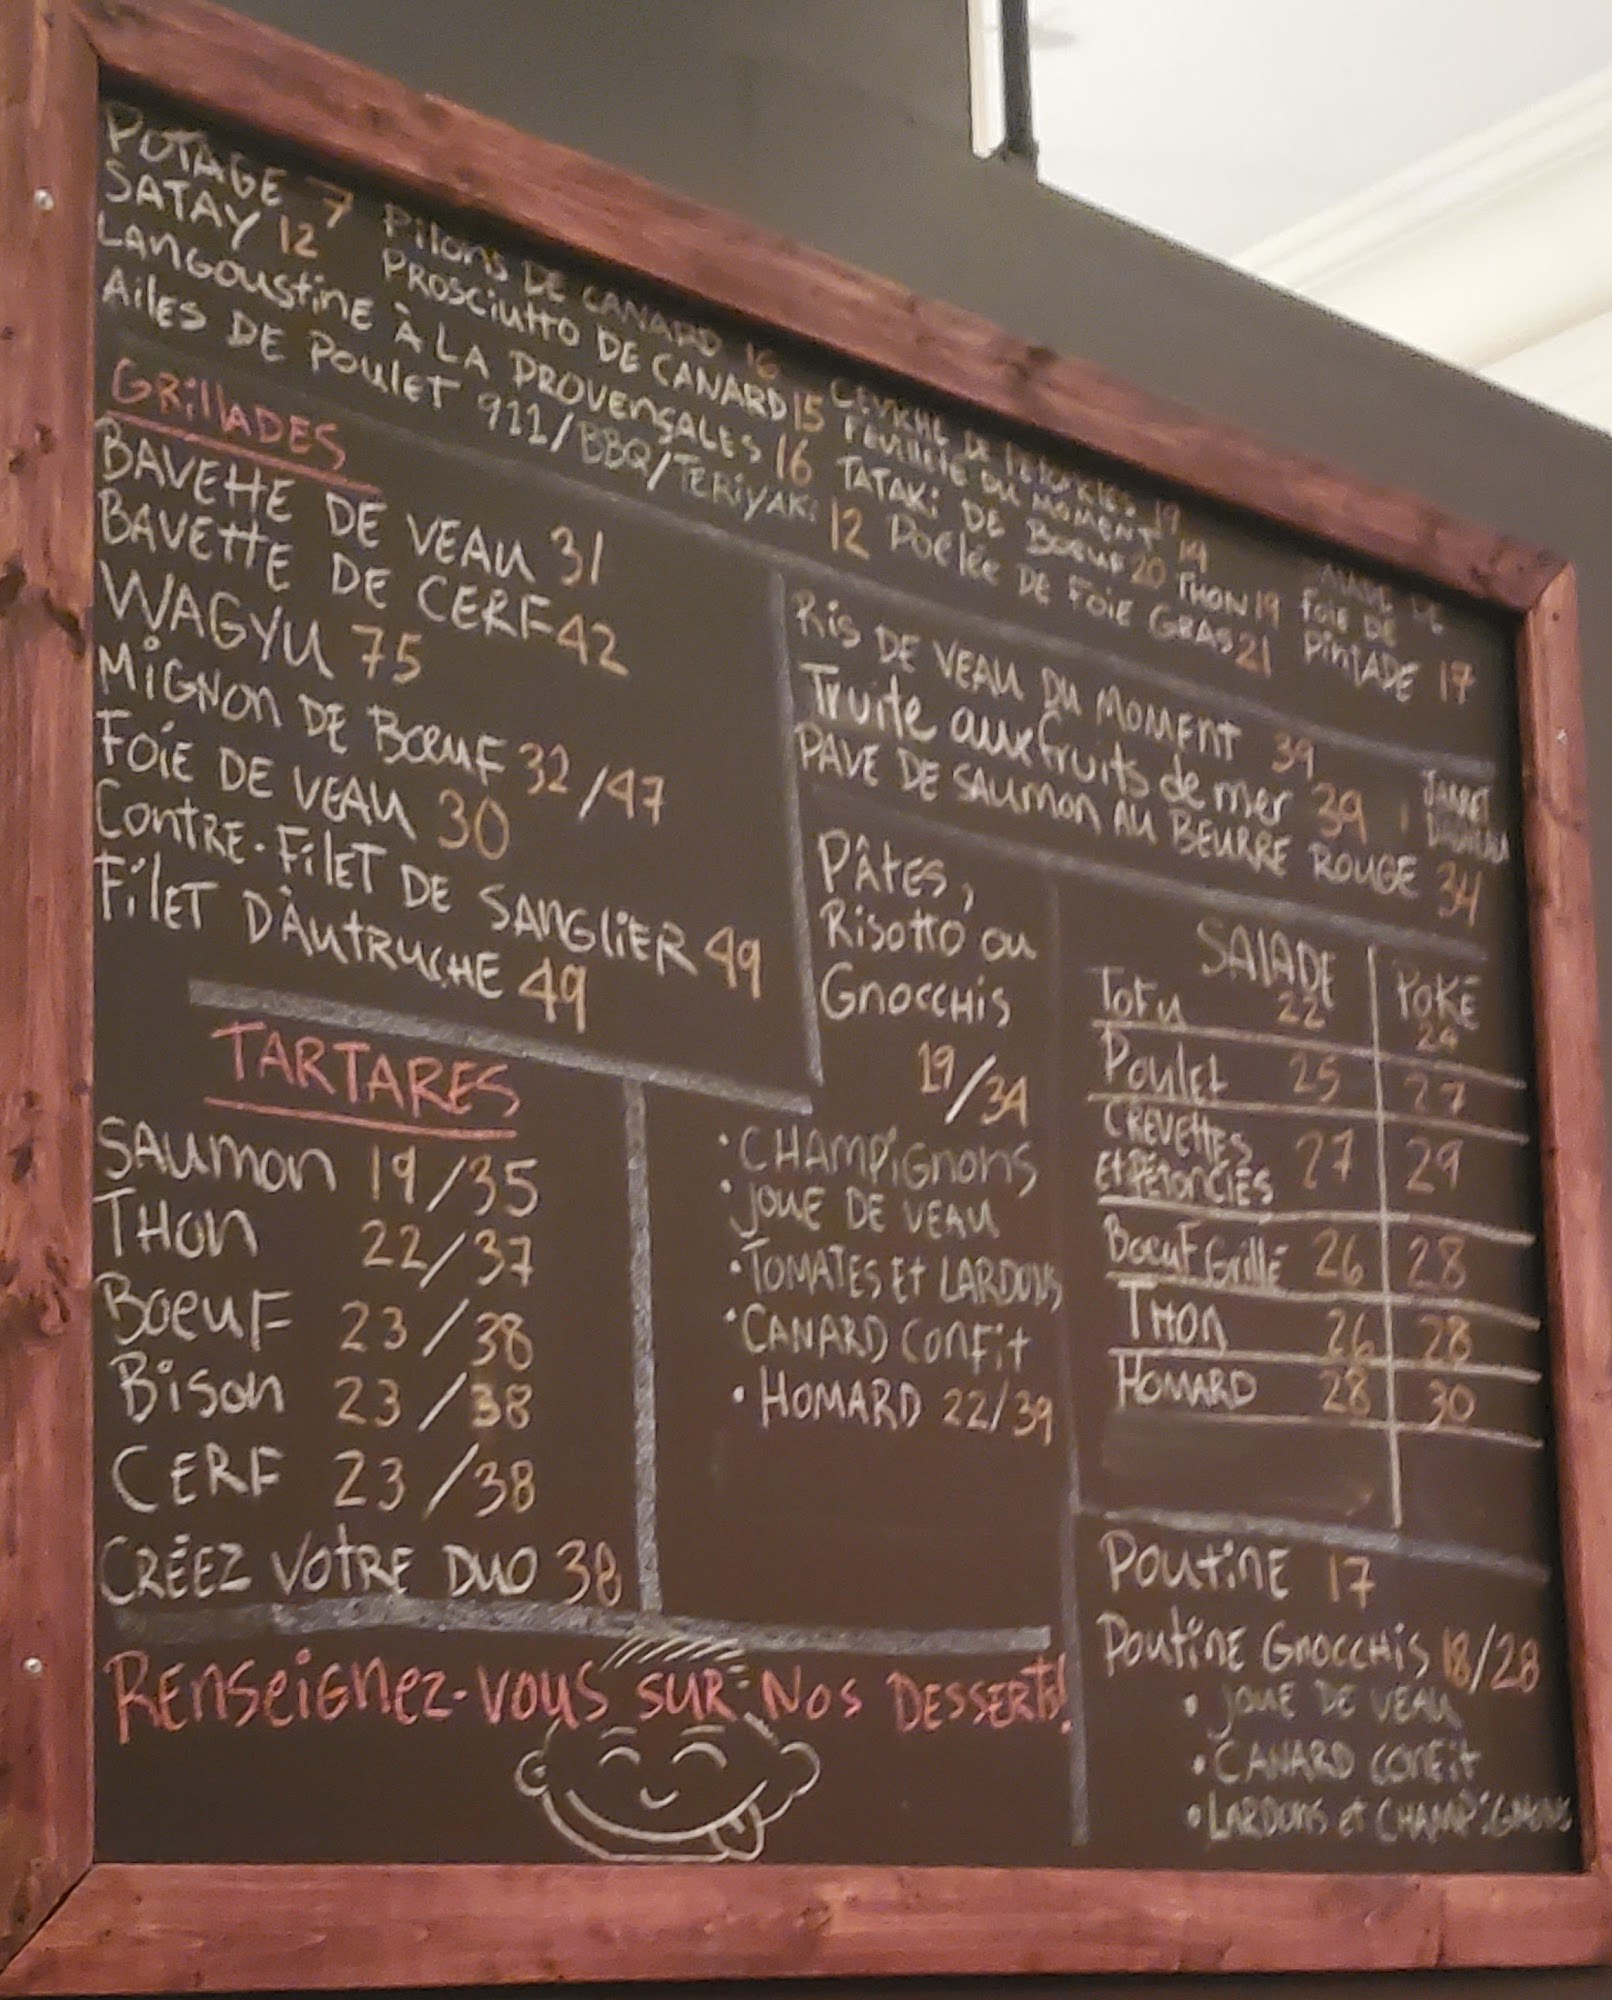 POTAGE 7
SATAY 12
LANGOUSTINE À LA PROVENÇALES 16
AILES DE POULET 911/BBQ/TERIYAKI 12
PILONS DE CANARD 16
PROSCIUTTO DE CANARD 15
CEVICHE DE PÉTONCLES 19
FEUILLETÉ DU MOMENT 19
TATAKI DE BOEUF 20 THON 19
POÊLÉE DE FOIE GRAS 21
DE
FOIE DE
PINTADE 17
GRILLADES
BAVETTE DE VEAU 31
BAVETTE DE CERF 42
WAGYU 75
MIGNON DE BOEUF 32/47
FOIE DE VEAU 30
CONTRE-FILET DE SANGLIER 49
FILET D'AUTRUCHE 49
RIS DE VEAU DU MOMENT 39
Truite aux fruits de mer 39
PAVÉ DE SAUMON AU BEURRE ROUGE 34
JARRET
TARTARES
SAUMON 19/35
THON 22/37
BOEUF 23/38
BISON 23/38
CERF 23/38
CRÉEZ VOTRE DUO 38
PÂTES,
RISOTTO OU
GNOCCHIS
19/34
• CHAMPIGNONS
• JOUE DE VEAU
• TOMATES ET LARDONS
• CANARD CONFIT
• HOMARD 22/39
SALADE POKÉ
TOFU 22 24
POULET 25 27
CREVETTES
ET PÉTONCLES 27 29
BOEUF GRILLÉ 26 28
THON 26 28
HOMARD 28 30
POUTINE 17
POUTINE GNOCCHIS 18/28
• JOUE DE VEAU
• CANARD CONFIT
• LARDONS ET CHAMPIGNONS
RENSEIGNEZ-VOUS SUR NOS DESSERTS!